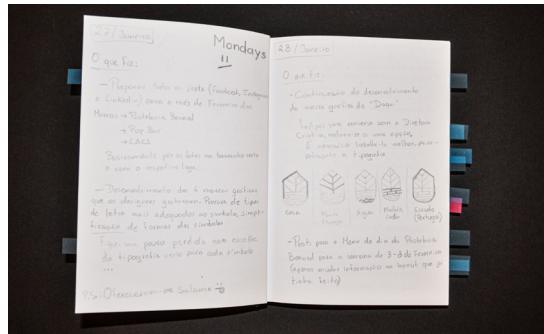 27/Janeiro
Mondays
O que fiz:
- Preparar todos os posts (Facebook, Instagram
e Linkedin) para o mês de Fevereiro das
Marcas → Probeleria Bernard
→ Pop Bar
→ CACS
Basicamente pôr as fotos no tamanho certo
e com o respetivo logo.
- Desenvolvimento das 4 marcas gráficas
que os designers gostaram. Procura de tipos
de letra mais adequados ao símbolo, simpli-
ficação de formas dos símbolos
Fiquei um pouco perdida na escolha
da tipografia certa para cada símbolo
...
P.S.: Ofereceram-me Salame
28/Janeiro
O que fiz:
- Continuação do desenvolvimento
da marca gráfica do "Doque"
Após uma conversa com a Diretora
Criativa,
É necessário trabalhá-la melhor,
a tipografia
Casa
Água
Escudo
(Portugal)
- Posts para o Menu do dia da
Bernard para a semana de 3-8 de Fevereiro
(apenas mudar informações no layout que já
tinha feito)